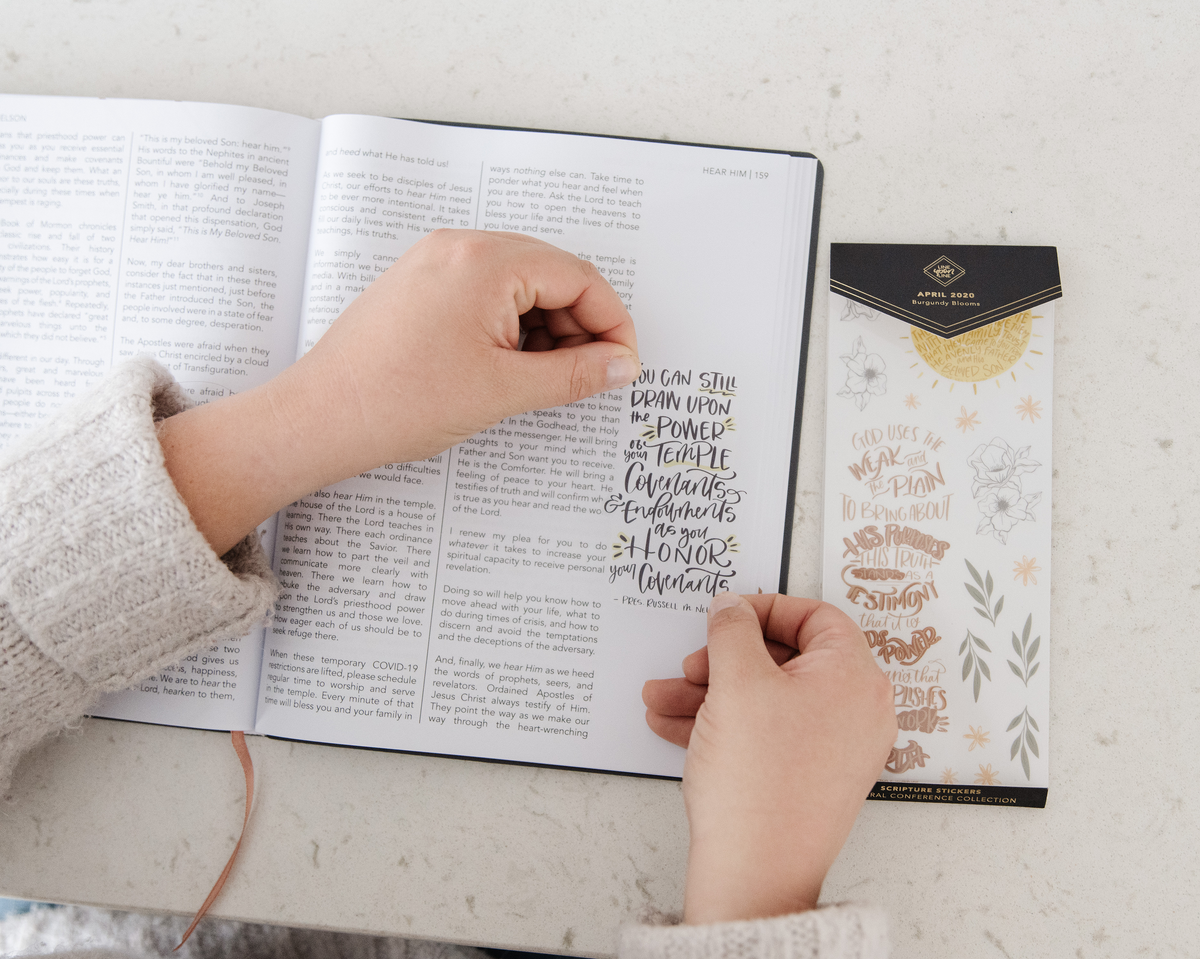 ELSON
ans that priesthood power can
as you as you receive essential
nances and make covenants
God and keep them. What an
or to our souls are these truths,
cially during these times when
empest is raging.
Book of Mormon chronicles
classic rise and fall of two
civilizations. Their history
nstrates how easy it is for a
ty of the people to forget God,
arnings of the Lord's prophets,
power, popularity, and
es of the flesh. Repeatedly,
ophets have declared "great
arvelous things unto the
which they did not believe."
different in our day. Through
"This is my beloved Son: hear him."
His words to the Nephites in ancient
Bountiful were "Behold my Beloved
Son, in whom I am well pleased, in
whom I have glorified my name—
hear ye him." And to Joseph
Smith, in that profound declaration
that opened this dispensation, God
simply said, "This is My Beloved Son.
Hear Him!"
Now, my dear brothers and sisters,
consider the fact that in these three
instances just mentioned, just before
the Father introduced the Son, the
people involved were in a state of fear
and, to some degree, desperation.
The Apostles were afraid when they
saw Jesus Christ encircled by a cloud
of Transfiguration.
se two
od gives us
us, happiness,
We are to hear the
Lord, hearken to them,
and heed what He has told us!
As we seek to be disciples of Jesus
Christ, our efforts to hear Him need
to be ever more intentional. It takes
conscious and consistent effort to
fill our daily lives with His wo
teachings, His truths.
We simply canno
information we bu
media. With billi
and in a mark
constantly
to difficulties
we would face.
also hear Him in the temple.
house of the Lord is a house of
learning. There the Lord teaches in
His own way. There each ordinance
teaches about the Savior. There
we learn how to part the veil and
communicate more clearly with
heaven. There we learn how to
rebuke the adversary and draw
upon the Lord's priesthood power
to strengthen us and those we love.
How eager each of us should be to
seek refuge there.
When these temporary COVID-19
restrictions are lifted, please schedule
regular time to worship and serve
in the temple. Every minute of that
time will bless you and your family in
HEAR HIM | 159
ways nothing else can. Take time to
ponder what you hear and feel when
you are there. Ask the Lord to teach
you how to open the heavens to
bless your life and the lives of those
you love and serve.
the temple is
te you to
family
It has
ative to know
speaks to you than
In the Godhead, the Holy
is the messenger. He will bring
thoughts to your mind which the
Father and Son want you to receive.
He is the Comforter. He will bring a
feeling of peace to your heart. He
testifies of truth and will confirm wh
is true as you hear and read the wo
of the Lo
I renew my plea for you to do
whatever it takes to increase your
spiritual capacity to receive personal
revelation.
Doing so will help you know how to
move ahead with your life, what to
do during times of crisis, and how to
discern and avoid the temptations
and the deceptions of the adversary.
And, finally, we hear Him as we heed
the words of prophets, seers, and
revelators. Ordained Apostles of
Jesus Christ always testify of Him.
They point the way as we make our
way through the heart-wrenching
YOU CAN STILL
DRAW UPON
the POWER
of your TEMPLE
Covenants
& Endowments
as you
HONOR
your Covenants
- PRES. RUSSELL M. NE
LINE upon LINE
APRIL 2020
Burgundy Blooms
HEAVENLY FATHER
and His
BELOVED SON
GOD USES THE
WEAK and
the PLAIN
TO BRING ABOUT
HIS PURPOSES
THIS TRUTH
AS A
TESTIMONY
that it is
POWER
that
PLISHES
WORK
SCRIPTURE STICKERS
RAL CONFERENCE COLLECTION